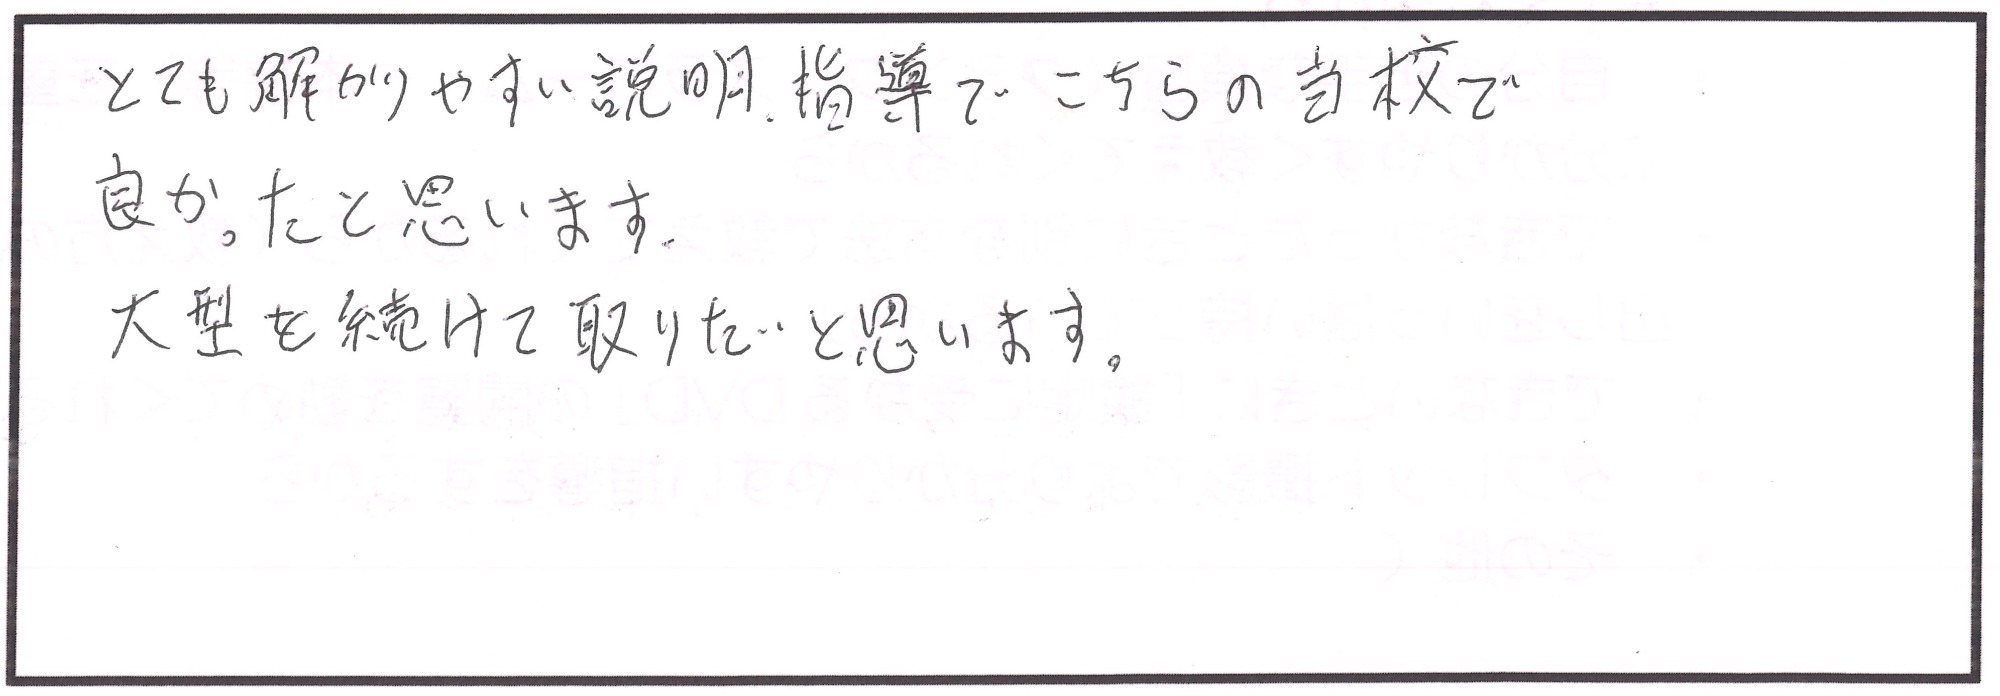 とても解かりやすい説明、指導で こちらの当校で
良かったと思います。
大型を続けて取りたいと思います。